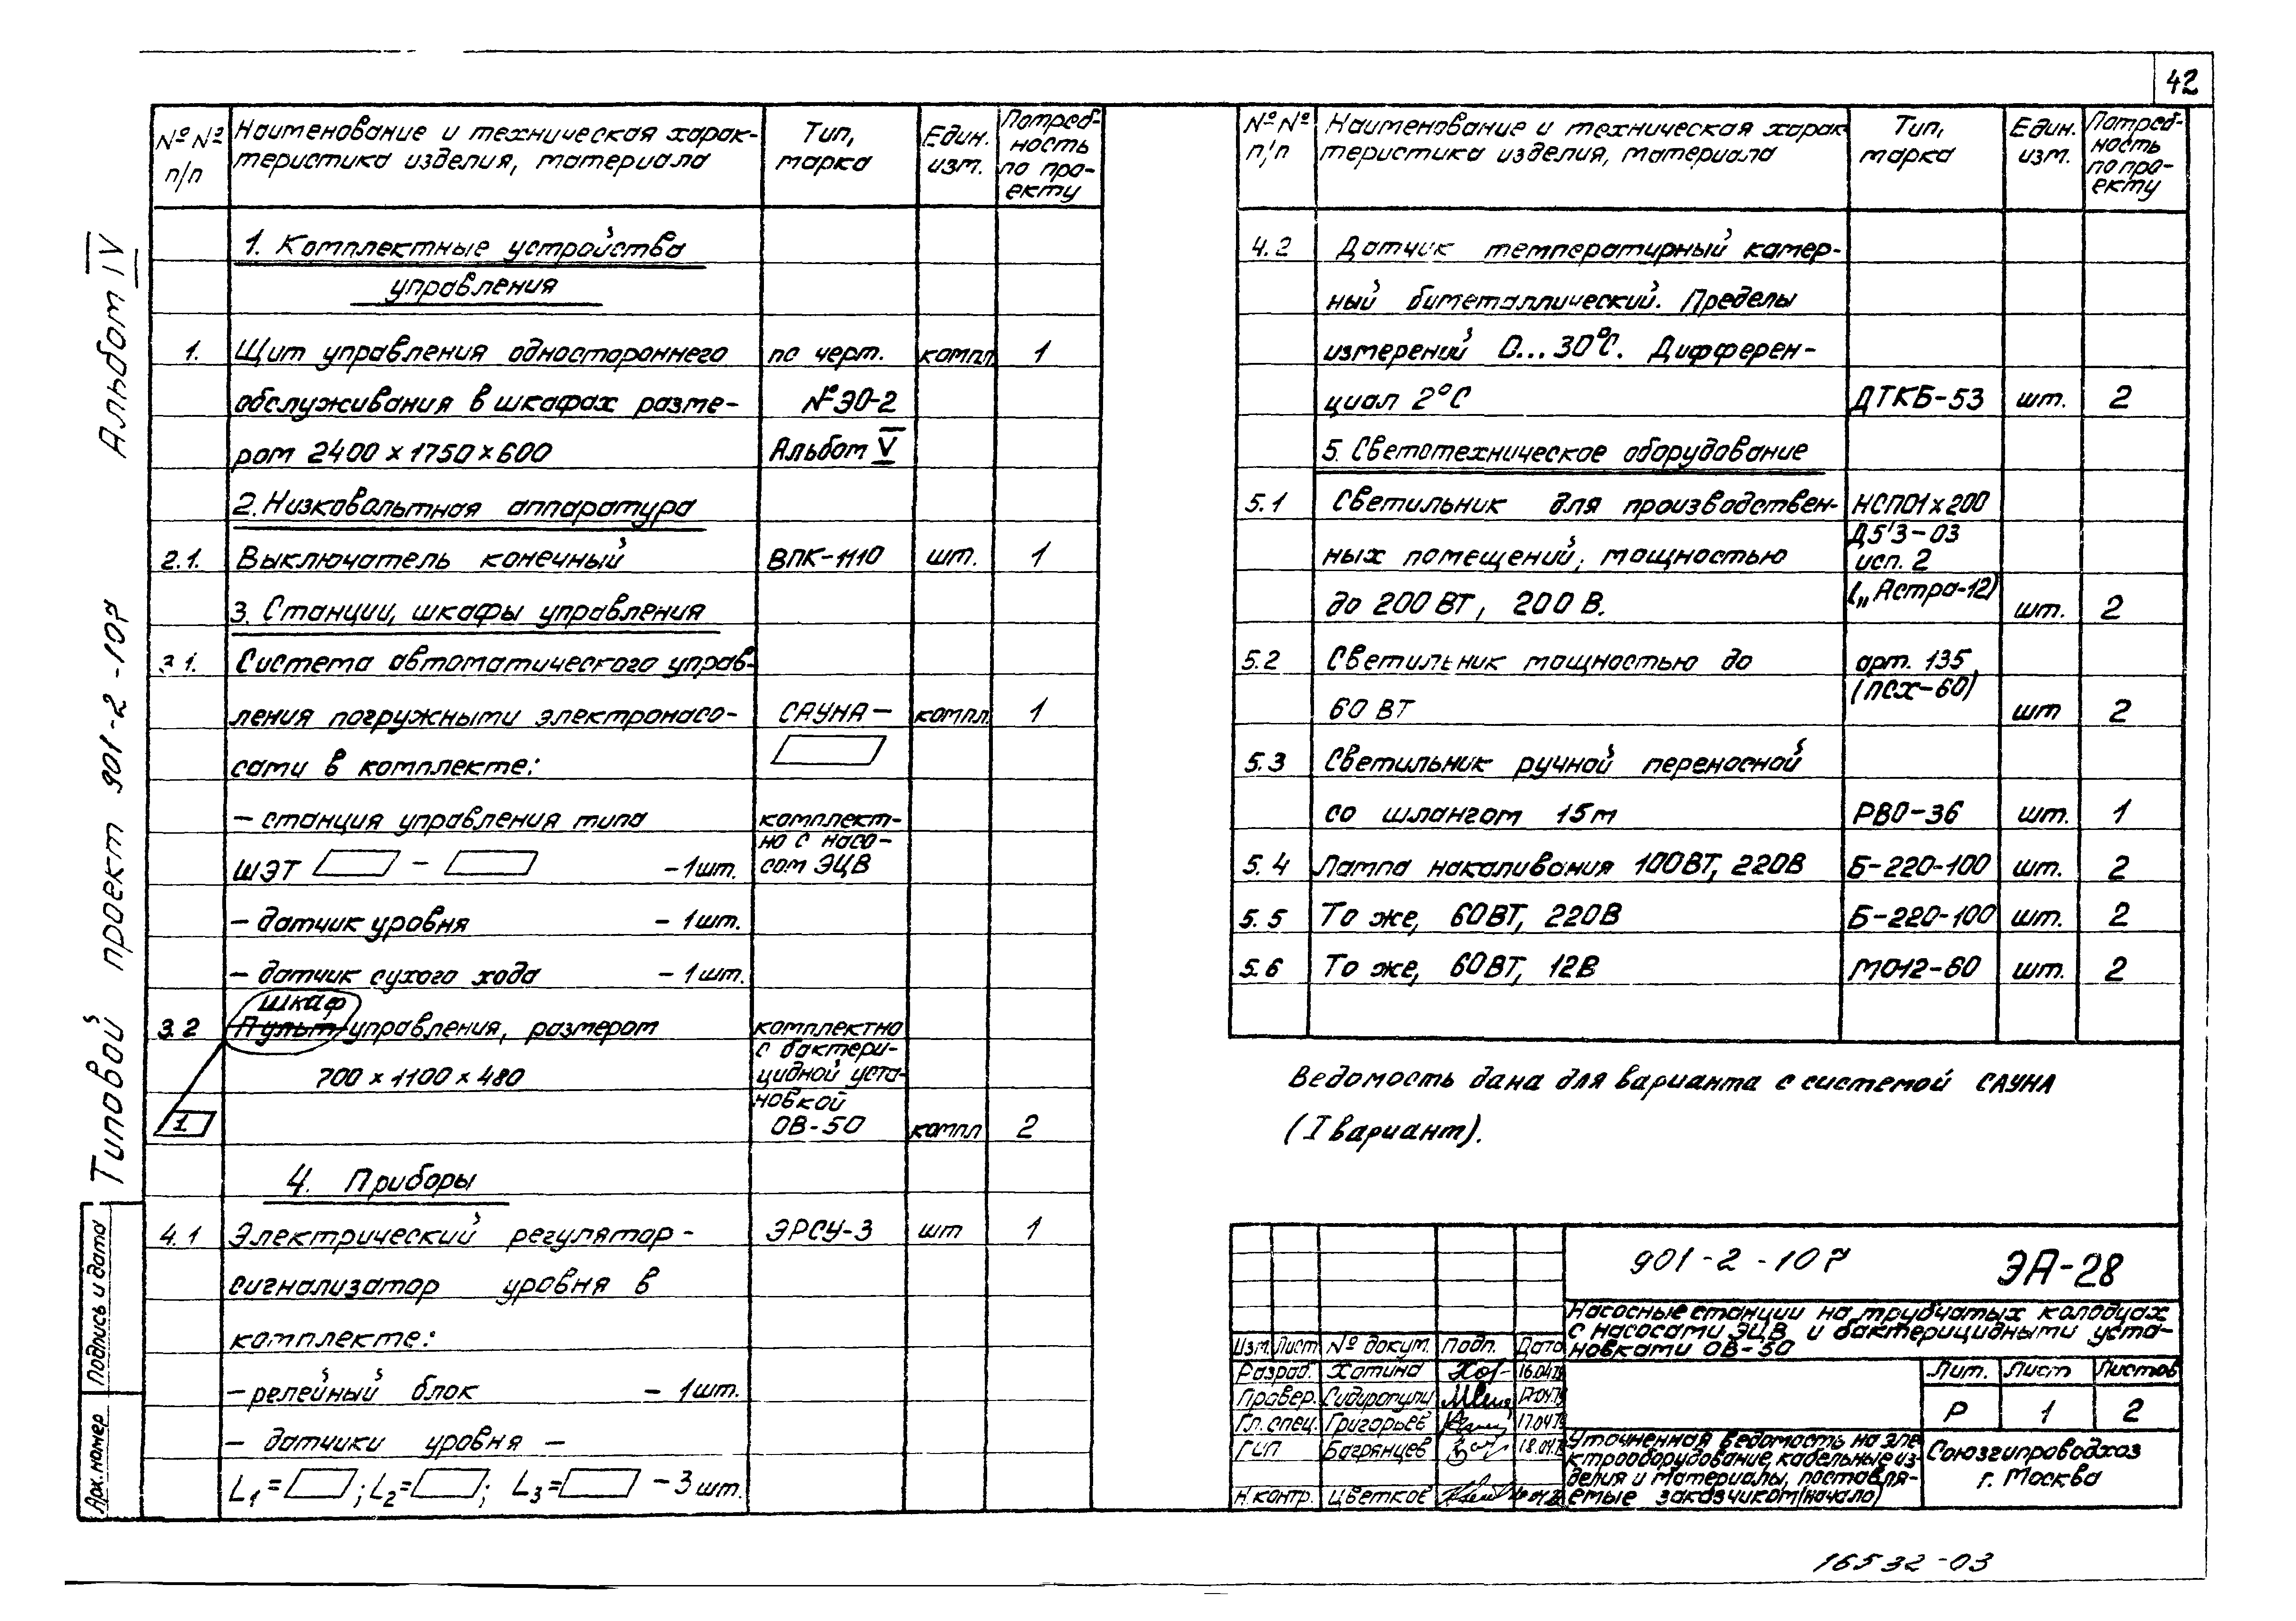 42
Альбом IV
Типовой проект 901-2-107
Подпись и дата
Арх. номер
№№ п/п
Наименование и техническая харак-
теристика изделия, материала
Тип, марка
Един. изм.
Потреб-
ность
по про-
екту
1. Комплектные устройства
управления
1. Щит управления одностороннего по черт. компл 1
обслуживания в шкафах разме- № ЭО-2
ром 2400 х 1750 х 600 Альбом V
2. Низковольтная аппаратура
2.1. Выключатель конечный ВПК-1110 шт. 1
3. Станции, шкафы управления
3.1. Система автоматического управ-
ления погружными электронасо- САУНА- компл. 1
сами в комплекте:
- станция управления типа комплект-
но с насо-
ШЭТ - - 1шт. сом ЭЦВ
- датчик уровня - 1шт.
- датчик сухого хода - 1шт.
шкаф
3.2 Пульт управления, размером комплектно
с бактери-
700 х 1100 х 480 цидной уста-
новкой
1 ОВ-50 компл 2
4. Приборы
4.1 Электрический регулятор- ЭРСУ-3 шт 1
сигнализатор уровня в
комплекте:
- релейный блок - 1шт.
- датчики уровня -
L1= ; L2= ; L3= - 3 шт.
№№ п/п
Наименование и техническая харак-
теристика изделия, материала
Тип, марка
Един. изм.
Потреб-
ность
по про-
екту
4.2 Датчик температирный камер-
ный биметаллический. Пределы
измерений 0...30°С. Дифферен-
циал 2°С ДТКБ-53 шт. 2
5. Светотехническое оборудование
5.1 Светильник для производствен- НСП01х200
Д5'3-03
ных помещений, мощностью исп. 2
до 200 ВТ, 200 В. („Астра-12) шт. 2
5.2 Светильник мощностью до арт. 135
(ПСХ-60)
60 ВТ шт 2
5.3 Светильник ручной переносной
со шлангом 15м РВО-36 шт. 1
5.4 Лампа накаливания 100ВТ, 220В Б-220-100 шт. 2
5.5 То же, 60ВТ, 220В Б-220-100 шт. 2
5.6 То же, 60ВТ, 12В МО12-60 шт. 2
Ведомость дана для варианта с системой САУНА
(I вариант).
901-2-107 ЭА-28
Насосные станции на трубчатых колодцах
с насосами ЭЦВ и бактерицидными уста-
новками ОВ-50
Изм. Лист № докум. Подп. Дата
Разраб. Хотина
Провер.
Гл. спец. Григорьев
ГИП Багрянцев
Н.контр. Цветков
Лит. Лист Листов
Р 1 2
Уточненная ведомость на эле
ктрооборудование, кабельные из-
делия и материалы, поставля-
емые заказчиком (начало)
Союзгипроводхоз
г. Москва
16532-03